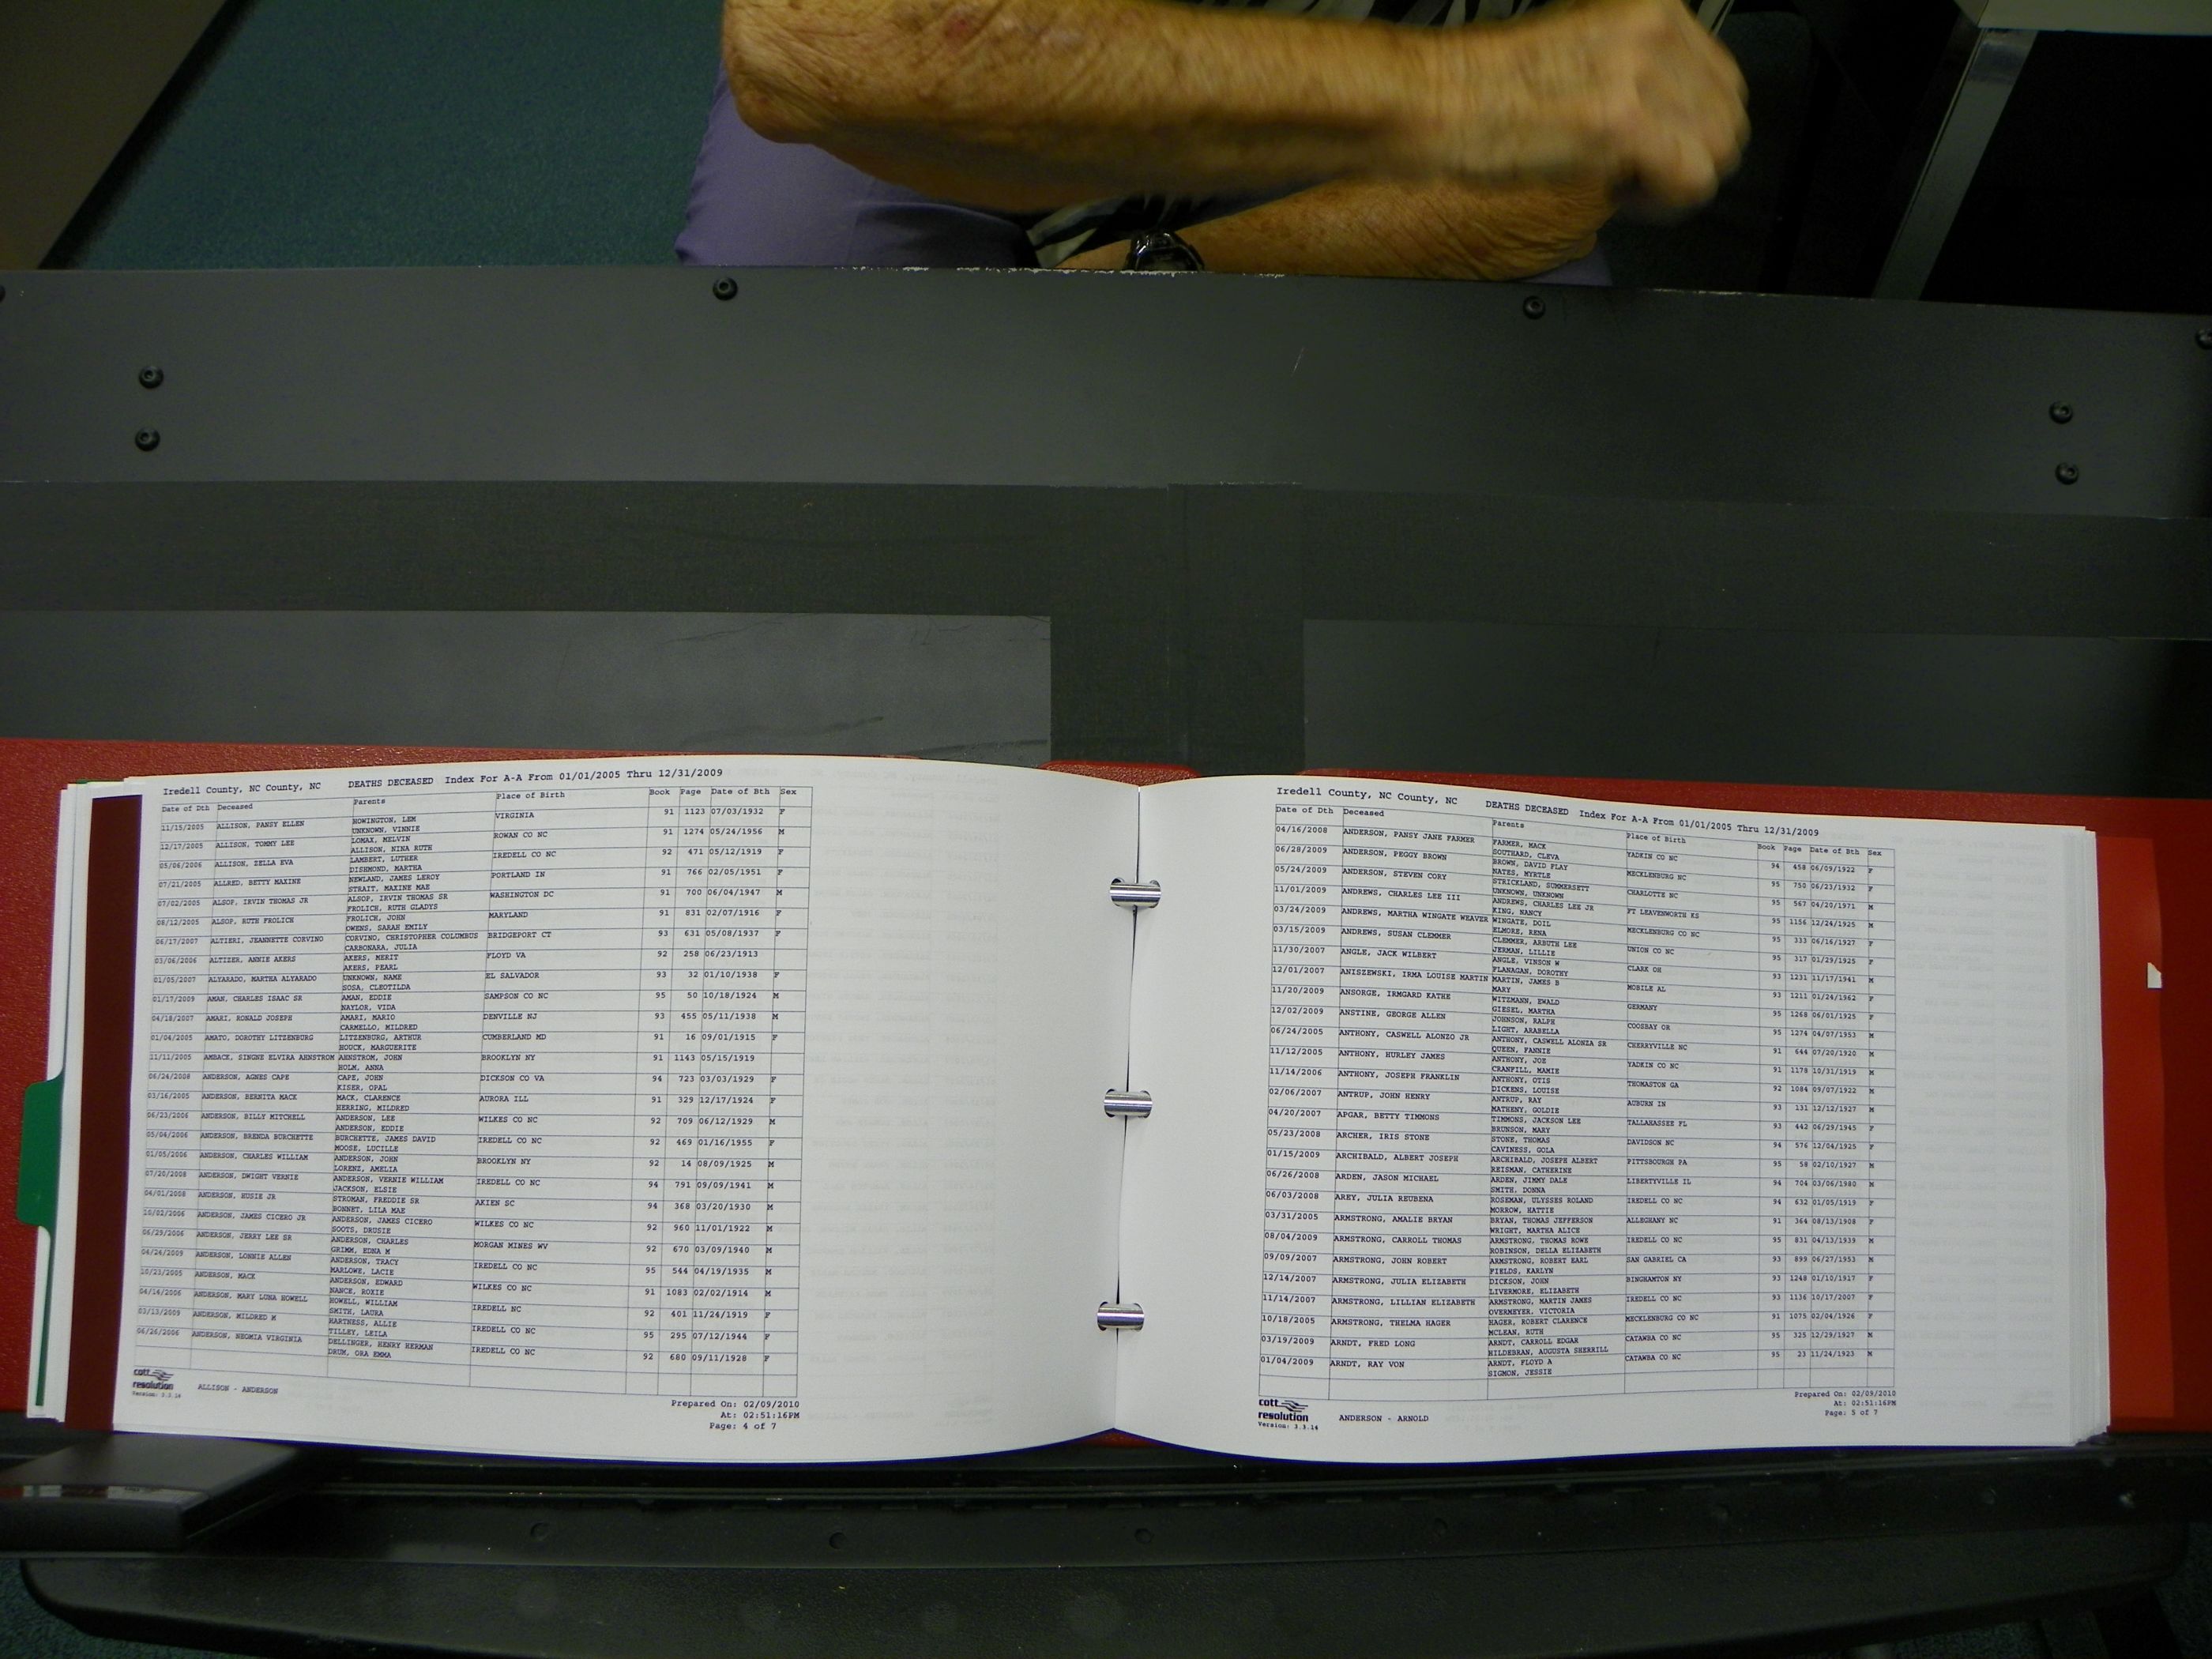 Iredell County, NC County, NC DEATHS DECEASED Index For A-A From 01/01/2005 Thru 12/31/2009
Date of Dth Deceased Parents Place of Birth Book Page Date of Bth Sex
11/15/2005 ALLISON, PANSY ELLEN HOWINGTON, LEM VIRGINIA 91 1123 07/03/1932 F
UNKNOWN, VINNIE
12/17/2005 ALLISON, TOMMY LEE LOMAX, MELVIN ROWAN CO NC 91 1274 05/24/1956 M
ALLISON, NINA RUTH
05/06/2006 ALLISON, ZELLA EVA LAMBERT, LUTHER IREDELL CO NC 92 471 05/12/1919 F
DISHMOND, MARTHA
07/21/2005 ALLRED, BETTY MAXINE NEWLAND, JAMES LEROY PORTLAND IN 91 766 02/05/1951 F
STRAIT, MAXINE MAE
07/02/2005 ALSOP, IRVIN THOMAS JR ALSOP, IRVIN THOMAS SR WASHINGTON DC 91 700 06/04/1947 M
FROLICH, RUTH GLADYS
08/12/2005 ALSOP, RUTH FROLICH FROLICH, JOHN MARYLAND 91 831 02/07/1916 F
OWENS, SARAH EMILY
06/17/2007 ALTIERI, JEANNETTE CORVINO CORVINO, CHRISTOPHER COLUMBUS BRIDGEPORT CT 93 631 05/08/1937 F
CARBONARA, JULIA
03/06/2006 ALTIZER, ANNIE AKERS AKERS, MERIT FLOYD VA 92 258 06/23/1913
AKERS, PEARL
01/05/2007 ALYARADO, MARTHA ALYARADO UNKNOWN, NAME EL SALVADOR 93 32 01/10/1938 F
SOSA, CLEOTILDA
01/17/2009 AMAN, CHARLES ISAAC SR AMAN, EDDIE SAMPSON CO NC 95 50 10/18/1924 M
NAYLOR, VIDA
04/18/2007 AMARI, RONALD JOSEPH AMARI, MARIO DENVILLE NJ 93 455 05/11/1938 M
CARMELLO, MILDRED
01/04/2005 AMATO, DOROTHY LITZENBURG LITZENBURG, ARTHUR CUMBERLAND MD 91 16 09/01/1915 F
HOUCK, MARGUERITE
11/11/2005 AMBACK, SINGNE ELVIRA AHNSTROM AHNSTROM, JOHN BROOKLYN NY 91 1143 05/15/1919
HOLM, ANNA
06/24/2008 ANDERSON, AGNES CAPE CAPE, JOHN DICKSON CO VA 94 723 03/03/1929 F
KISER, OPAL
03/16/2005 ANDERSON, BERNITA MACK MACK, CLARENCE AURORA ILL 91 329 12/17/1924 F
HERRING, MILDRED
06/23/2006 ANDERSON, BILLY MITCHELL ANDERSON, LEE WILKES CO NC 92 709 06/12/1929 M
ANDERSON, EDDIE
05/04/2006 ANDERSON, BRENDA BURCHETTE BURCHETTE, JAMES DAVID IREDELL CO NC 92 469 01/16/1955 F
MOOSE, LUCILLE
01/05/2006 ANDERSON, CHARLES WILLIAM ANDERSON, JOHN BROOKLYN NY 92 14 08/09/1925 M
LORENZ, AMELIA
07/20/2008 ANDERSON, DWIGHT VERNIE ANDERSON, VERNIE WILLIAM IREDELL CO NC 94 791 09/09/1941 M
JACKSON, ELSIE
04/01/2008 ANDERSON, HUSIE JR STROMAN, FREDDIE SR AKIEN SC 94 368 03/20/1930 M
BONNET, LILA MAE
10/02/2006 ANDERSON, JAMES CICERO JR ANDERSON, JAMES CICERO WILKES CO NC 92 960 11/01/1922 M
SOOTS, DRUSIE
06/29/2006 ANDERSON, JERRY LEE SR ANDERSON, CHARLES MORGAN MINES WV 92 670 03/09/1940 M
GRIMM, EDNA M
04/24/2009 ANDERSON, LONNIE ALLEN ANDERSON, TRACY IREDELL CO NC 95 544 04/19/1935 M
MARLOWE, LACIE
10/23/2005 ANDERSON, MACK ANDERSON, EDWARD WILKES CO NC 91 1083 02/02/1914 M
NANCE, ROXIE
04/14/2006 ANDERSON, MARY LUNA HOWELL HOWELL, WILLIAM IREDELL NC 92 401 11/24/1919 F
SMITH, LAURA
03/13/2009 ANDERSON, MILDRED M HARTNESS, ALLIE IREDELL CO NC 95 295 07/12/1944 F
TILLEY, LEILA
06/26/2006 ANDERSON, NEOMIA VIRGINIA DELLINGER, HENRY HERMAN IREDELL CO NC 92 680 09/11/1928 F
DRUM, ORA EMMA
cott
resolution
Version: 3.3.14
ALLISON - ANDERSON
Prepared On: 02/09/2010
At: 02:51:16PM
Page: 4 of 7
Iredell County, NC County, NC DEATHS DECEASED Index For A-A From 01/01/2005 Thru 12/31/2009
Date of Dth Deceased Parents Place of Birth Book Page Date of Bth Sex
04/16/2008 ANDERSON, PANSY JANE FARMER FARMER, MACK YADKIN CO NC 94 458 06/09/1922 F
SOUTHARD, CLEVA
06/28/2009 ANDERSON, PEGGY BROWN BROWN, DAVID PLAY MECKLENBURG NC 95 750 06/23/1932 F
NATES, MYRTLE
05/24/2009 ANDERSON, STEVEN CORY STRICKLAND, SUMMERSETT CHARLOTTE NC 95 567 04/20/1971 M
UNKNOWN, UNKNOWN
11/01/2009 ANDREWS, CHARLES LEE III ANDREWS, CHARLES LEE JR FT LEAVENWORTH KS 95 1156 12/24/1925 M
KING, NANCY
03/24/2009 ANDREWS, MARTHA WINGATE WEAVER WINGATE, DOIL MECKLENBURG CO NC 95 333 06/16/1927 F
ELMORE, RENA
03/15/2009 ANDREWS, SUSAN CLEMMER CLEMMER, ARBUTH LEE UNION CO NC 95 317 01/29/1925 F
JERMAN, LILLIE
11/30/2007 ANGLE, JACK WILBERT ANGLE, VINSON W CLARK OH 93 1231 11/17/1941 M
FLANAGAN, DOROTHY
12/01/2007 ANISZEWSKI, IRMA LOUISE MARTIN MARTIN, JAMES B MOBILE AL 93 1211 01/24/1962 F
MARY
11/20/2009 ANSORGE, IRMGARD KATHE WITZMANN, EWALD GERMANY 95 1268 06/01/1925 F
GIESEL, MARTHA
12/02/2009 ANSTINE, GEORGE ALLEN JOHNSON, RALPH COOSBAY OR 95 1274 04/07/1953 M
LIGHT, ARABELLA
06/24/2005 ANTHONY, CASWELL ALONZO JR ANTHONY, CASWELL ALONZA SR CHERRYVILLE NC 91 644 07/20/1920 M
QUEEN, FANNIE
11/12/2005 ANTHONY, HURLEY JAMES ANTHONY, JOE YADKIN CO NC 91 1178 10/31/1919 M
CRANFILL, MAMIE
11/14/2006 ANTHONY, JOSEPH FRANKLIN ANTHONY, OTIS THOMASTON GA 92 1084 09/07/1922 M
DICKENS, LOUISE
02/06/2007 ANTRUP, JOHN HENRY ANTRUP, RAY AUBURN IN 93 131 12/12/1927 M
MATHENY, GOLDIE
04/20/2007 APGAR, BETTY TIMMONS TIMMONS, JACKSON LEE TALLAHASSEE FL 93 442 06/29/1945 F
BRUNSON, MARY
05/23/2008 ARCHER, IRIS STONE STONE, THOMAS DAVIDSON NC 94 576 12/04/1925 F
CAVINESS, GOLA
01/15/2009 ARCHIBALD, ALBERT JOSEPH ARCHIBALD, JOSEPH ALBERT PITTSBOURGH PA 95 58 02/10/1927 M
REISMAN, CATHERINE
06/26/2008 ARDEN, JASON MICHAEL ARDEN, JIMMY DALE LIBERTYVILLE IL 94 704 03/06/1980 M
SMITH, DONNA
06/03/2008 AREY, JULIA REUBENA ROSEMAN, ULYSSES ROLAND IREDELL CO NC 94 632 01/05/1919 F
MORROW, HATTIE
03/31/2005 ARMSTRONG, AMALIE BRYAN BRYAN, THOMAS JEFFERSON ALLEGHANY NC 91 364 08/13/1908 F
WRIGHT, MARTHA ALICE
08/04/2009 ARMSTRONG, CARROLL THOMAS ARMSTRONG, THOMAS ROWE IREDELL CO NC 95 831 04/13/1939 M
ROBINSON, DELLA ELIZABETH
09/09/2007 ARMSTRONG, JOHN ROBERT ARMSTRONG, ROBERT EARL SAN GABRIEL CA 93 899 06/27/1953 M
FIELDS, KARLYN
12/14/2007 ARMSTRONG, JULIA ELIZABETH DICKSON, JOHN BINGHAMTON NY 93 1248 01/10/1917 F
LIVERMORE, ELIZABETH
11/14/2007 ARMSTRONG, LILLIAN ELIZABETH ARMSTRONG, MARTIN JAMES IREDELL CO NC 93 1136 10/17/2007 F
OVERMEYER, VICTORIA
10/18/2005 ARMSTRONG, THELMA HAGER HAGER, ROBERT CLARENCE MECKLENBURG CO NC 91 1075 02/04/1926 F
MCLEAN, RUTH
03/19/2009 ARNDT, FRED LONG ARNDT, CARROLL EDGAR CATAWBA CO NC 95 325 12/29/1927 M
HILDEBRAN, AUGUSTA SHERRILL
01/04/2009 ARNDT, RAY VON ARNDT, FLOYD A CATAWBA CO NC 95 23 11/24/1923 M
SIGMON, JESSIE
cott
resolution
Version: 3.3.14
ANDERSON - ARNOLD
Prepared On: 02/09/2010
At: 02:51:16PM
Page: 5 of 7